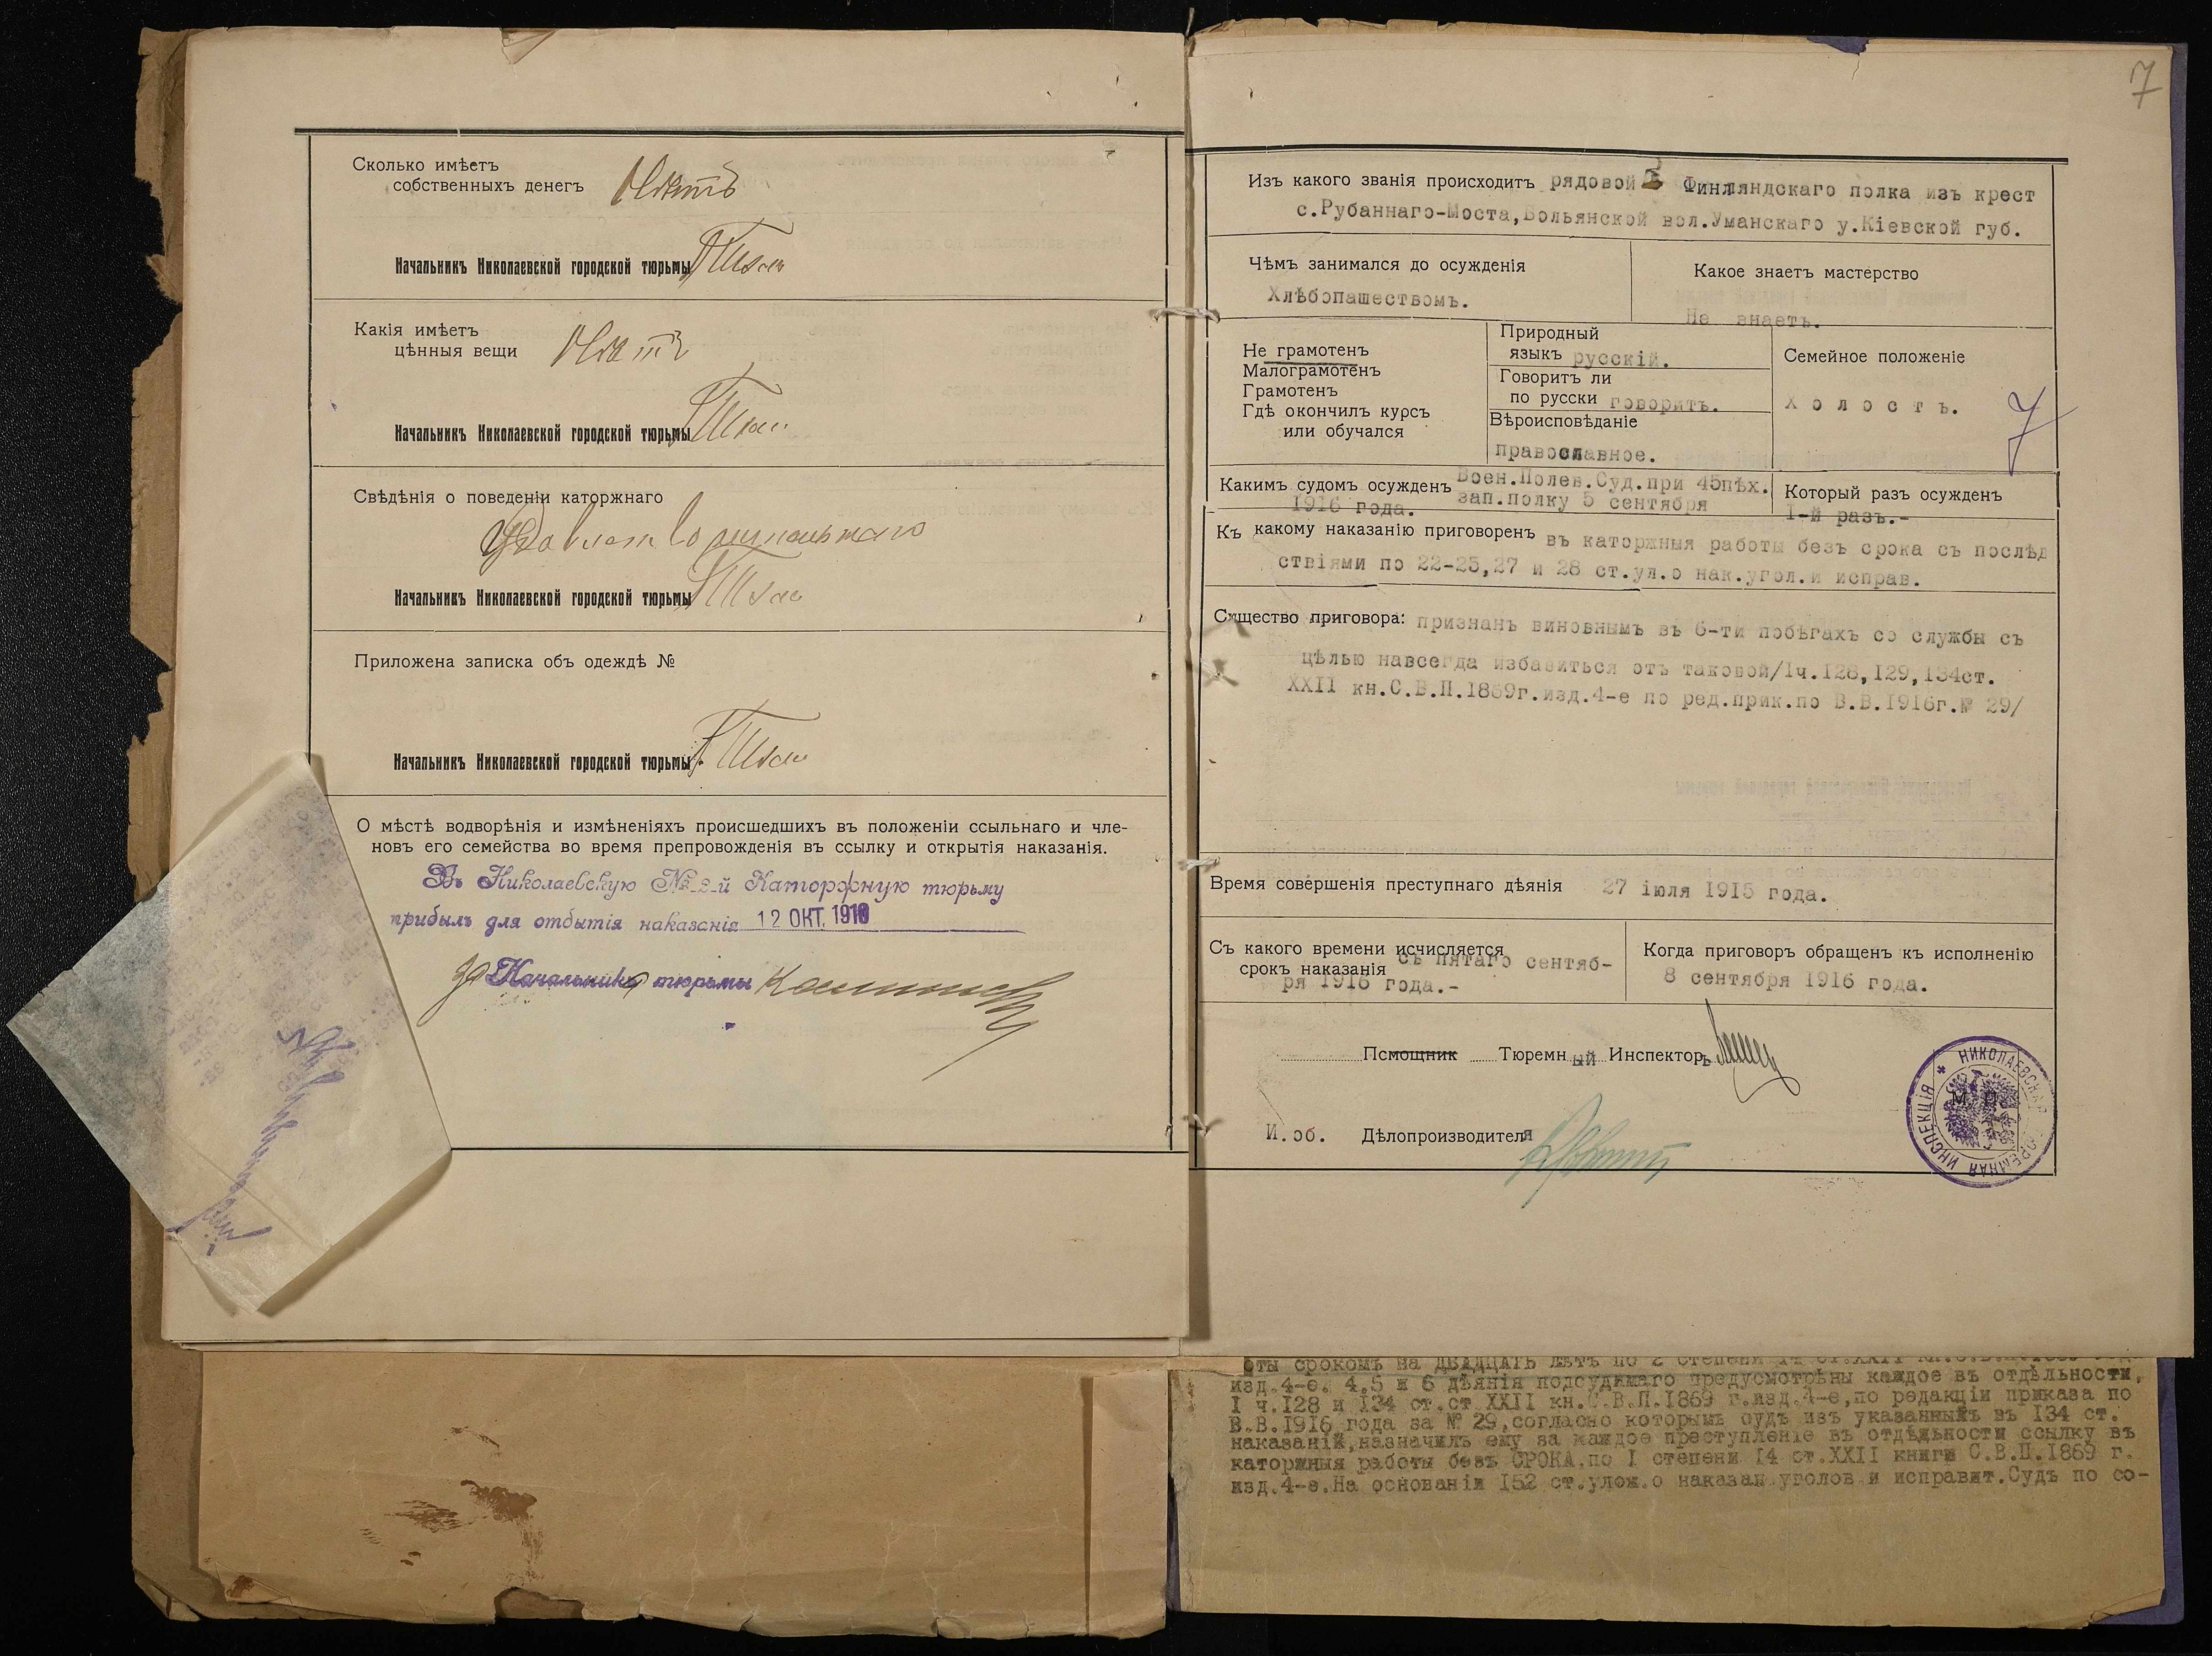 Сколько имѣетъ
собственныхъ денегъ Нѣтъ
Начальникъ Николаевской городской тюрьмы
Какія имѣетъ
цѣнныя вещи Нѣтъ
Начальникъ Николаевской городской тюрьмы
Свѣдѣнія о поведеніи каторжнаго
Удовлетворительнаго
Начальникъ Николаевской городской тюрьмы
Приложена записка объ одеждѣ №
Начальникъ Николаевской городской тюрьмы
О мѣстѣ водворѣнія и измѣненіяхъ происшедшихъ въ положеніи ссыльнаго и чле-
новъ его семейства во время препровожденія въ ссылку и открытія наказанія.
Въ Николаевскую № 2-й Каторжную тюрьму
прибылъ для отбытія наказанія 12 ОКТ. 1916
За Начальника тюрьмы
7
Изъ какого званія происходитъ рядовой Финляндскаго полка изъ крест
с.Рубаннаго-Моста,Вольянской вол.Уманскаго у.Кіевской губ.
Чѣмъ занимался до осужденія
Хлѣбопашествомъ.
Какое знаетъ мастерство
Не знаетъ.
Не грамотенъ
Малограмотенъ
Грамотенъ
Гдѣ окончилъ курсъ
или обучался
Природный
языкъ русскій.
Говоритъ ли
по русски говоритъ.
Вѣроисповѣданіе
православное.
Семейное положеніе
Холостъ.
7
Какимъ судомъ осужденъ Воен.Полев.Суд.при 45пѣх.
зап.полку 5 сентября
1916 года.
Который разъ осужденъ
1-й разъ.-
Къ какому наказанію приговоренъ въ каторжныя работы безъ срока съ послѣд
ствіями по 22-25,27 и 28 ст.ул.о нак.угол.и исправ.
Существо приговора: признанъ виновнымъ въ 6-ти побѣгахъ со службы съ
цѣлью навсегда избавиться отъ таковой/1ч.128,129,134ст.
XXII кн.С.В.П.1869г.изд.4-е по ред.прик.по В.В.1916г.№ 29/
Время совершенія преступнаго дѣянія 27 іюля 1915 года.
Съ какого времени исчисляется
срокъ наказанія съ пятаго сентяб-
ря 1916 года.-
Когда приговоръ обращенъ къ исполненію
8 сентября 1916 года.
Псмощник Тюремный Инспекторъ
М. П.
НИКОЛАЕВСКАЯ ТЮРЕМНАЯ ИНСПЕКЦІЯ
И. об. Дѣлопроизводителя
оты срокомъ на ДВАДЦАТЬ лѣтъ по 2 степени 14 ст.XXII кн.
изд.4-е. 4,5 и 6 дѣянія подсудимаго предусмотрѣны каждое въ отдѣльности,
I ч.128 и 134 ст.ст XXII кн.С.В.П.1869 г.изд.4-е,по редакціи приказа по
В.В.1916 года за № 29,согласно которымъ судъ изъ указанныхъ въ 134 ст.
наказаній,назначилъ ему за каждое преступленіе въ отдѣльности ссылку въ
каторжныя работы безъ СРОКА,по I степени 14 ст.XXII книги С.В.П.1869 г.
изд.4-е.На основаніи 152 ст.улож.о наказан.уголов.и исправит.Судъ по со-